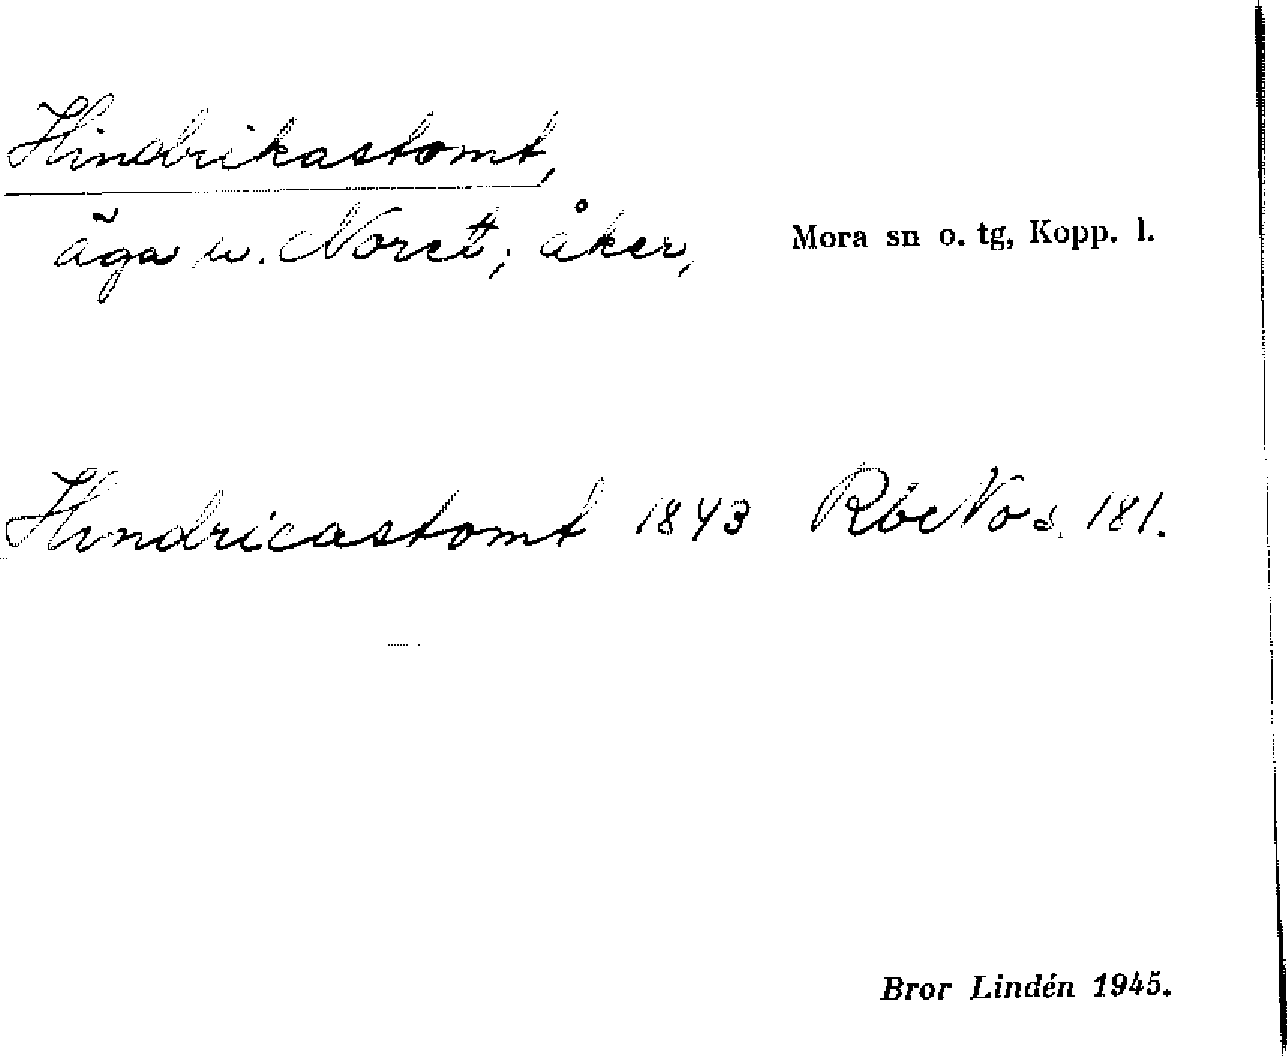 Hindrikastomt,
äga u. Noret; åker, Mora sn o. tg, Kopp. l.
Hindricastomt 1843 RbcNo s. 181.
Bror Lindén 1945.